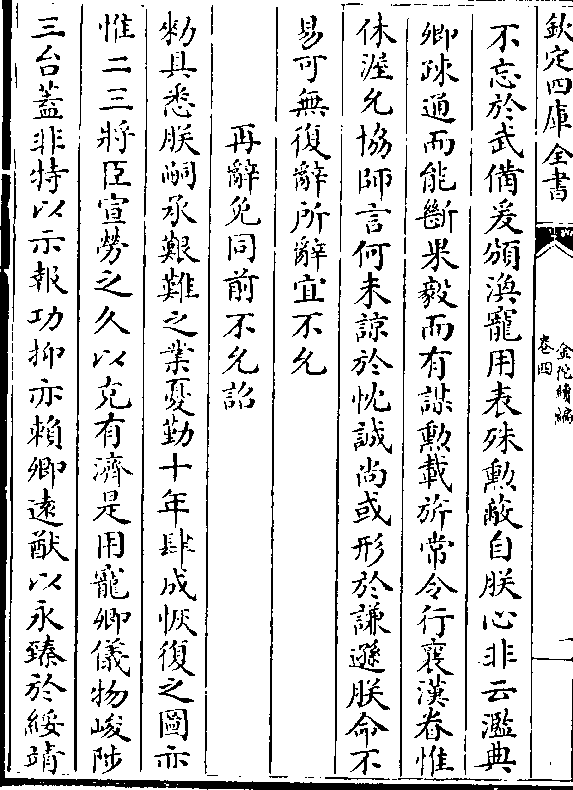 欽定四庫全書
金陀續編
卷四
不忘於武備爰頒渙寵用表殊勲蔽自朕心非云濫典
卿疎通而能斷果毅而有謀勲載旂常令行襄漢眷惟
休渥允協師言何未諒於忱誠尚或形於謙遜朕命不
易可無復辭所辭宜不允
再辭免同前不允詔
勑具悉朕嗣承艱難之業憂勤十年肆成恢復之圖亦
惟二三將臣宣勞之久以克有濟是用寵卿儀物峻陟
三台蓋非特以示報功抑亦賴卿遠猷以永臻於綏靖